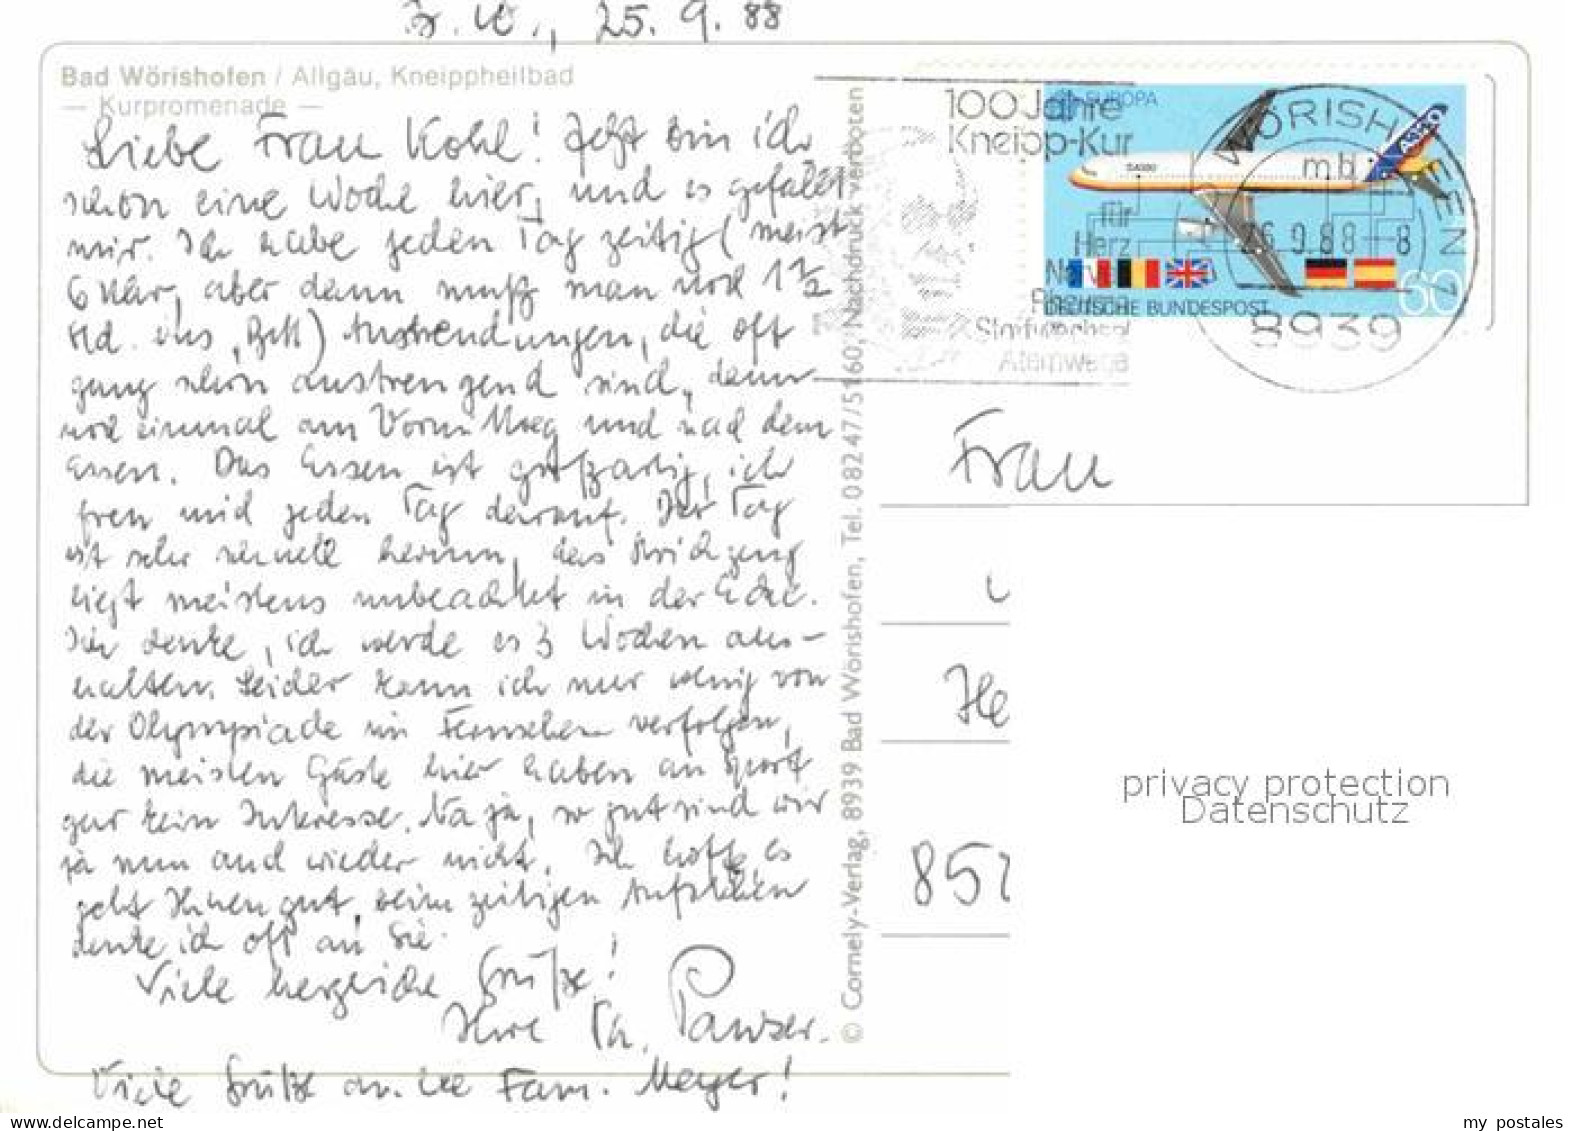 B. Wö., 25. 9. 88
Bad Wörishofen / Allgäu, Kneippheilbad
— Kurpromenade —
Liebe Frau Kohl! Jetzt bin ich
schon eine Woche hier, und es gefällt
mir. Ich habe jeden Tag zeitig (meist
6 Uhr, aber dann muß man noch 1 ½
Std. ins Bett) Anwendungen, die oft
ganz schön anstrengend sind, dann
noch einmal am Vormittag und nach dem
Essen. Das Essen ist großartig, ich
freu mich jeden Tag darauf. Der Tag
ist sehr schnell herum, das Strickzeug
liegt meistens unbeachtet in der Ecke.
Ich denke, ich werde es 3 Wochen aus-
halten. Leider kann ich nur wenig von
der Olympiade im Fernsehen verfolgen,
die meisten Gäste hier haben an Sport
gar kein Interesse. Na ja, so gut sind wir
ja nun auch wieder nicht. Ich hoffe, es
geht Ihnen gut, beim zeitigen Aufstehen
denke ich oft an Sie.
Viele herzliche Grüße!
Ihre
Viele Grüße an die Fam. Meyer!
© Cornely-Verlag, 8939 Bad Wörishofen, Tel. 08247/5160, Nachdruck verboten
100 Jahre
Kneipp-Kur
für
Herz
Nerven
Rheuma
Stoffwechsel
Atemwege
EUROPA
DEUTSCHE BUNDESPOST
60
WÖRISHOFEN 1
mb
26.9.88-8
8939
Frau
He
852
privacy protection
Datenschutz
www.delcampe.net
my_postales